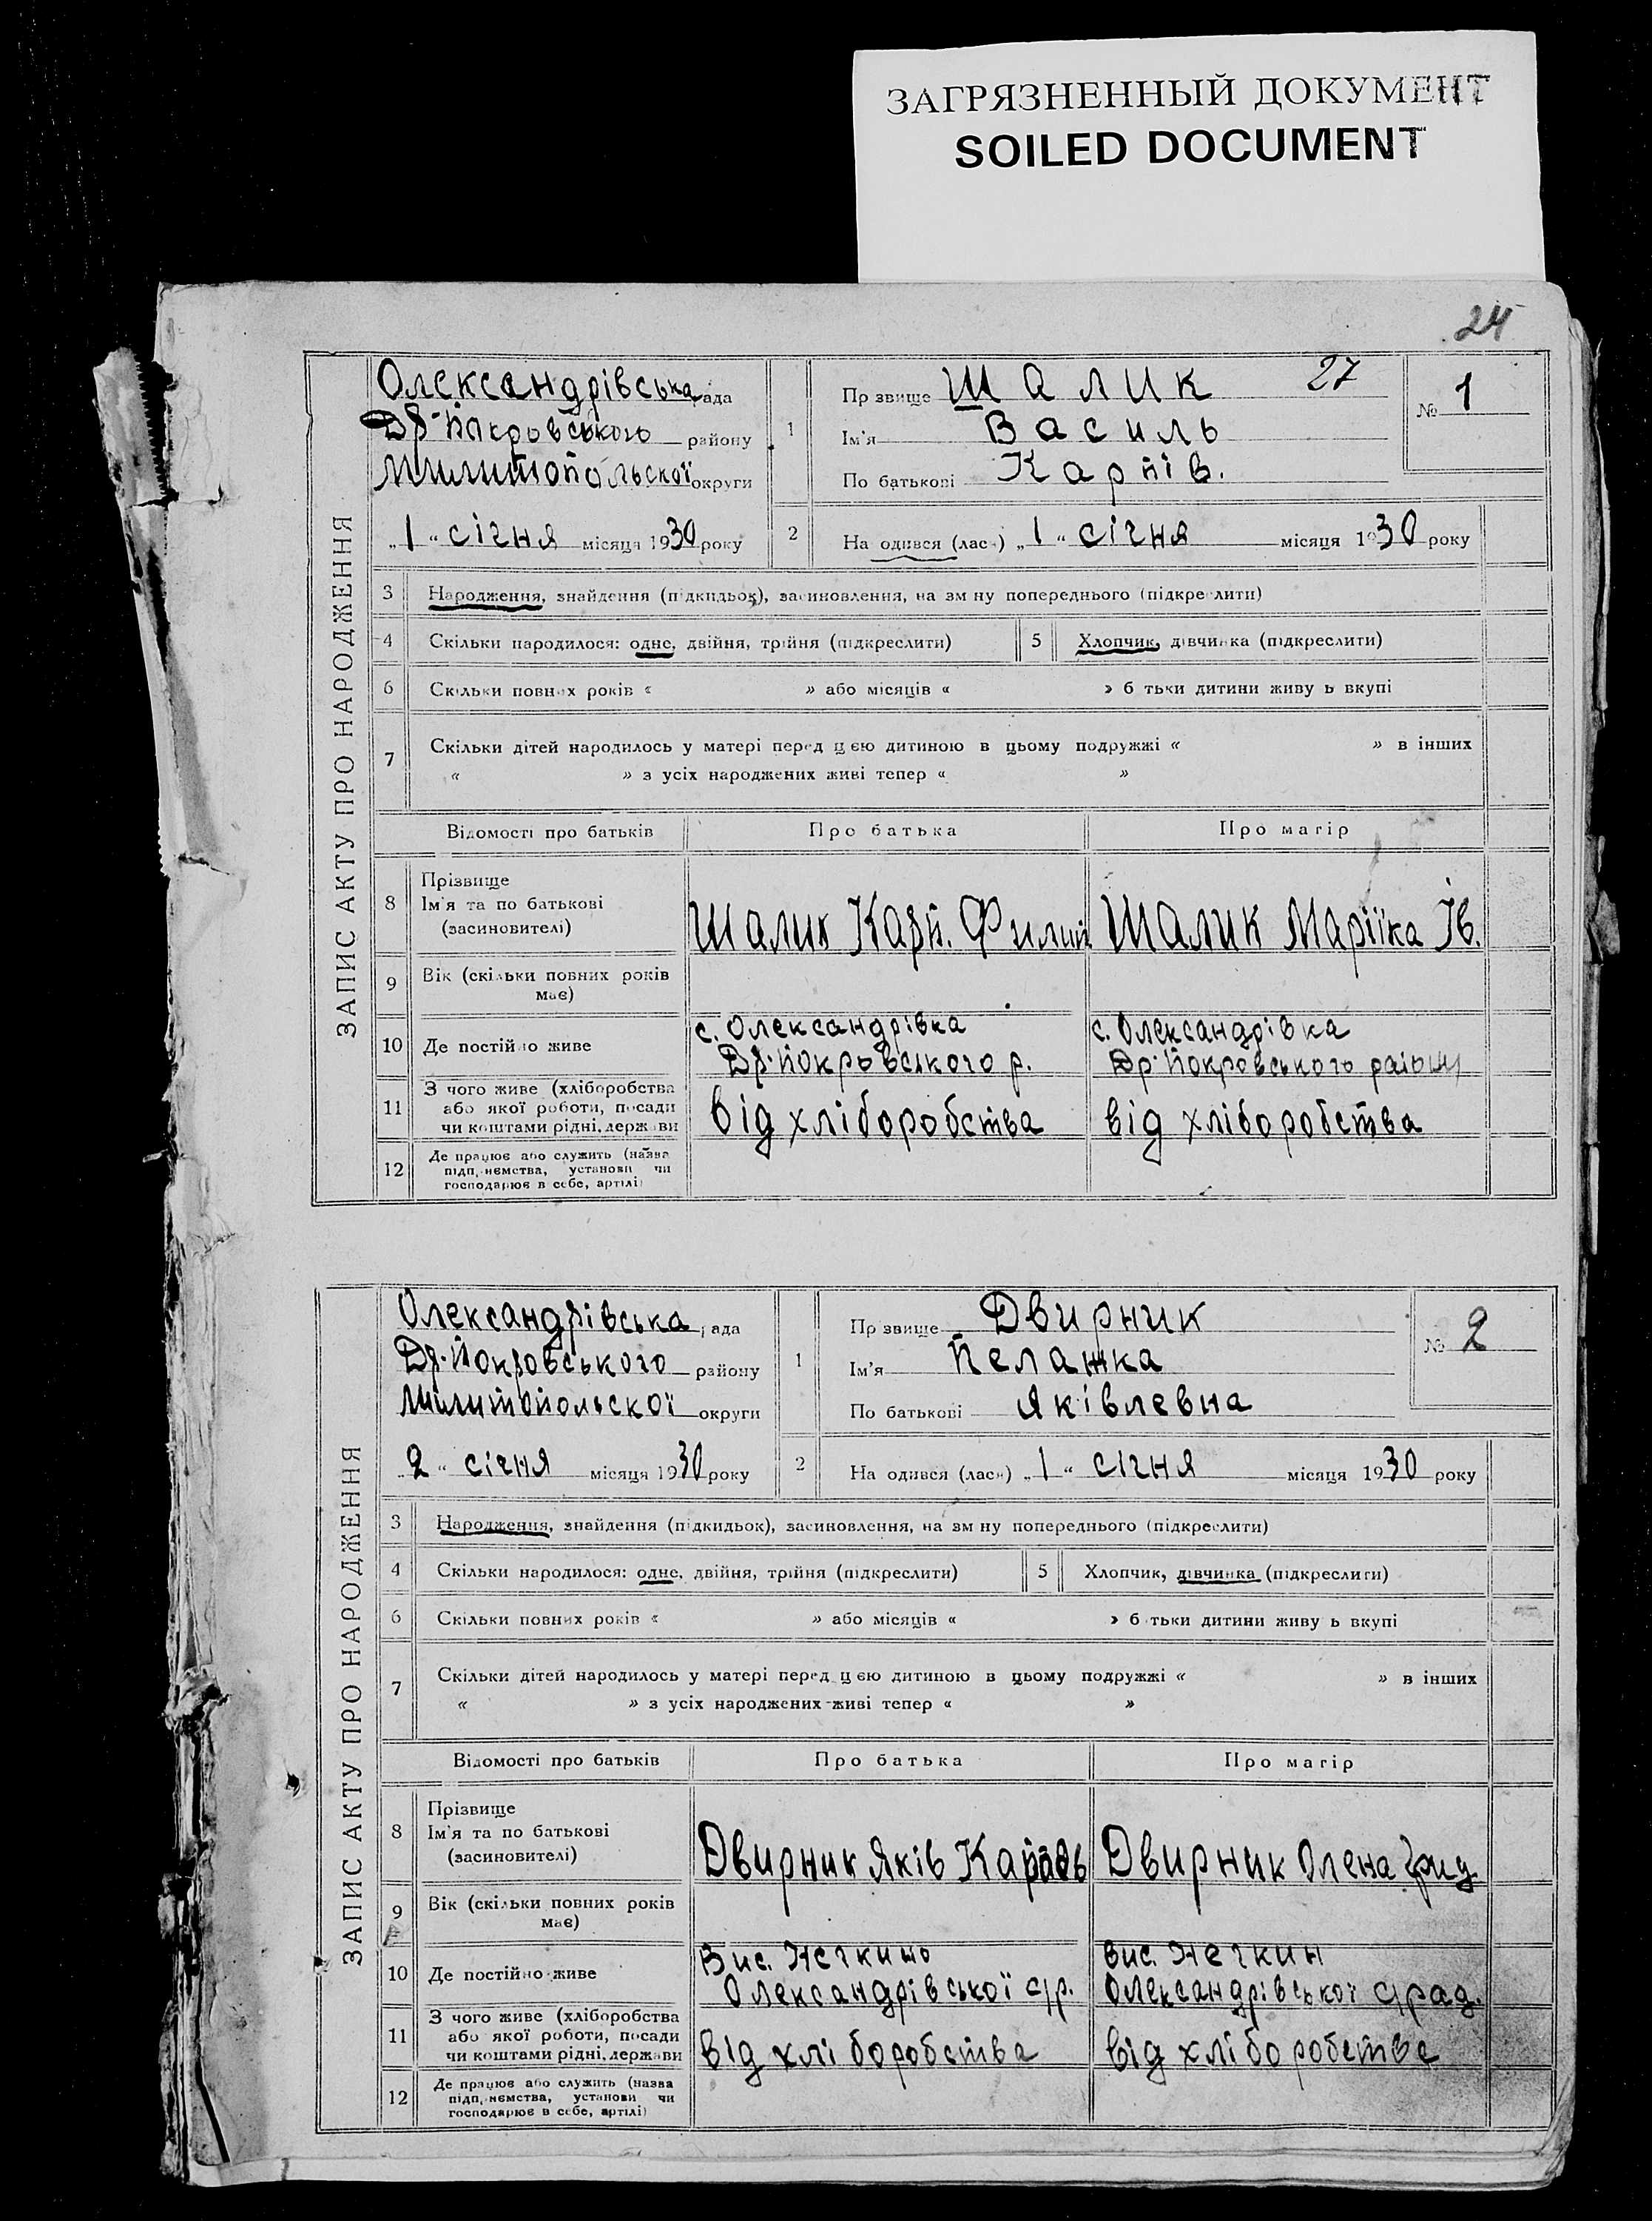 ЗАГРЯЗНЕННЫЙ ДОКУМЕНТ
SOILED DOCUMENT
24
ЗАПИС АКТУ ПРО НАРОДЖЕННЯ
Олександрівська рада
Др-Покровського району
Милитопольскої округи
„1“ січня місяця 1930 року
1
Пр звище Шалик 27
Ім'я Василь
По батькові Карпів.
№ 1
2 На одився (лась) „1“ січня місяця 1930 року
3 Народження, знайдення (підкидьок), засиновлення, на зм ну попереднього (підкреслити)
4 Скільки народилося: одне, двійня, трійня (підкреслити) 5 Хлопчик, дівчинка (підкреслити)
6 Скільки повних років « » або місяців « » б тьки дитини живу ь вкупі
7 Скільки дітей народилось у матері перед ц єю дитиною в цьому подружжі « » в інших
« » з усіх народжених живі тепер « »
Відомості про батьків Про батька Про матір
8 Прізвище
Ім'я та по батькові
(засиновителі)
Шалик Карп. Филип Шалик Маріїка Ів.
9 Вік (скільки повних років
має)
10 Де постійно живе
с. Олександрівка с. Олександрівка
Др-Покровського р. Др-Покровського району
11 З чого живе (хліборобства
або якої роботи, посади
чи коштами рідні, держави
від хліборобства від хліборобства
12 Де працює або служить (назва
підп, ємства, установи чи
господарює в себе, артілі)
ЗАПИС АКТУ ПРО НАРОДЖЕННЯ
Олександрівська рада
Др-Покровського району
Милитопольскої округи
„2“ січня місяця 1930 року
1
Пр звище Двирник
Ім'я Пелажка
По батькові Яківлевна
№ 2
2 На одився (лась) „1“ січня місяця 1930 року
3 Народження, знайдення (підкидьок), засиновлення, на зм ну попереднього (підкреслити)
4 Скільки народилося: одне, двійня, трійня (підкреслити) 5 Хлопчик, дівчинка (підкреслити)
6 Скільки повних років « » або місяців « » б тьки дитини живу ь вкупі
7 Скільки дітей народилось у матері перед ц єю дитиною в цьому подружжі « » в інших
« » з усіх народжених живі тепер « »
Відомості про батьків Про батька Про матір
8 Прізвище
Ім'я та по батькові
(засиновителі)
Двирник Яків Двирник Олена Григ
9 Вік (скільки повних років
має)
10 Де постійно живе
Вис. Вис. Нечкин
Олександрівської с/р. Олександрівської с/рад.
11 З чого живе (хліборобства
або якої роботи, посади
чи коштами рідні, держави
від хліборобства від хліборобства
12 Де працює або служить (назва
підп, ємства, установи чи
господарює в себе, артілі)